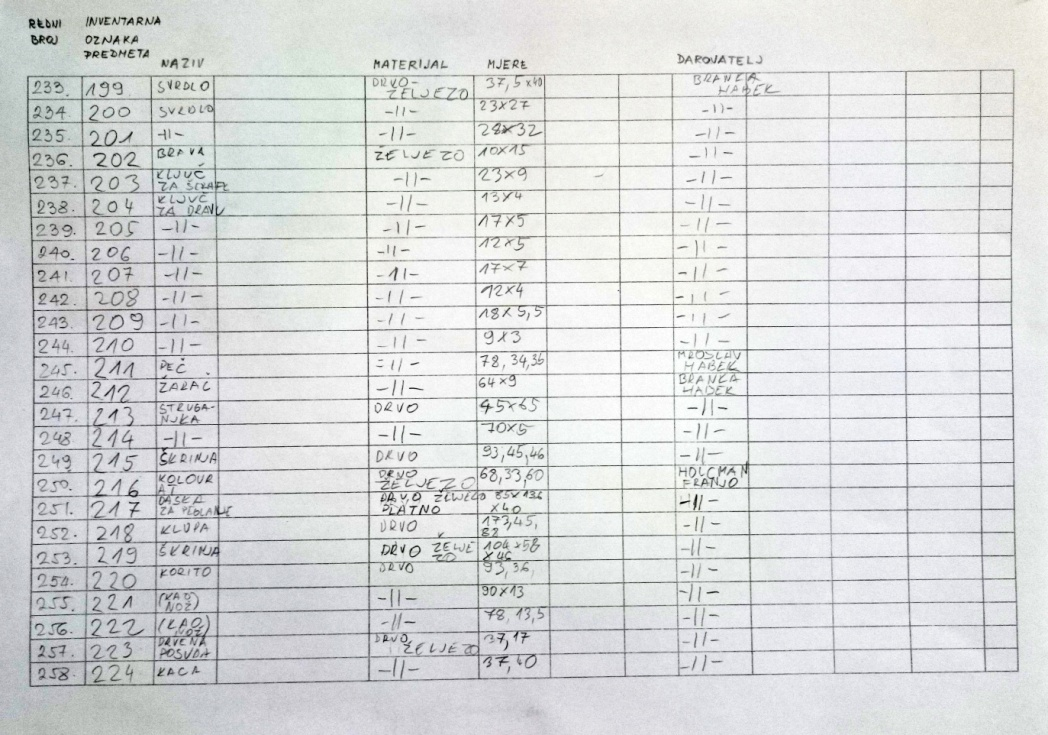 REDNI BROJ INVENTARNA OZNAKA PREDMETA NAZIV MATERIJAL MJERE DAROVATELJ
233. 199 SVRDLO DRVO-ŽELJEZO 37,5x40 BRANKA HABEK
234. 200 SVRDLO -II- 23x27 -II-
235. 201 -II- -II- 28x32 -II-
236. 202 BRAVA ŽELJEZO 10x15 -II-
237. 203 KLJUČ ZA ŠKAFE -II- 23x9 -II-
238. 204 KLJUČ ZA BRAVU -II- 13x4 -II-
239. 205 -II- -II- 17x5 -II-
240. 206 -II- -II- 12x5 -II-
241. 207 -II- -II- 17x7 -II-
242. 208 -II- -II- 12x4 -II-
243. 209 -II- -II- 18x5,5 -II-
244. 210 -II- -II- 9x3 -II-
245. 211 PEČ -II- 78,34,36 MIROSLAV HABEK
246. 212 ŽARAČ -II- 64x9 BRANKA HABEK
247. 213 STRUGANJKA DRVO 45x65 -II-
248. 214 -II- -II- 70x5 -II-
249. 215 ŠKRINJA DRVO 93,45,46 -II-
250. 216 KOLOVRAT DRVO ŽELJEZO 68,33,60 HOLCMAN FRANJO
251. 217 DASKA ZA PEGLANJE DRVO ŽELJEZO PLATNO x40 -II-
252. 218 KLUPA DRVO 173,45,82 -II-
253. 219 ŠKRINJA DRVO ŽELJEZO 104x58x46 -II-
254. 220 KORITO DRVO 93,36, -II-
255. 221 (KAO NOŽ) -II- 90x13 -II-
256. 222 (KAO NOŽ) -II- 78,13,5 -II-
257. 223 DRVENA POSUDA DRVO ŽELJEZO 37,17 -II-
258. 224 KACA -II- 37,40 -II-